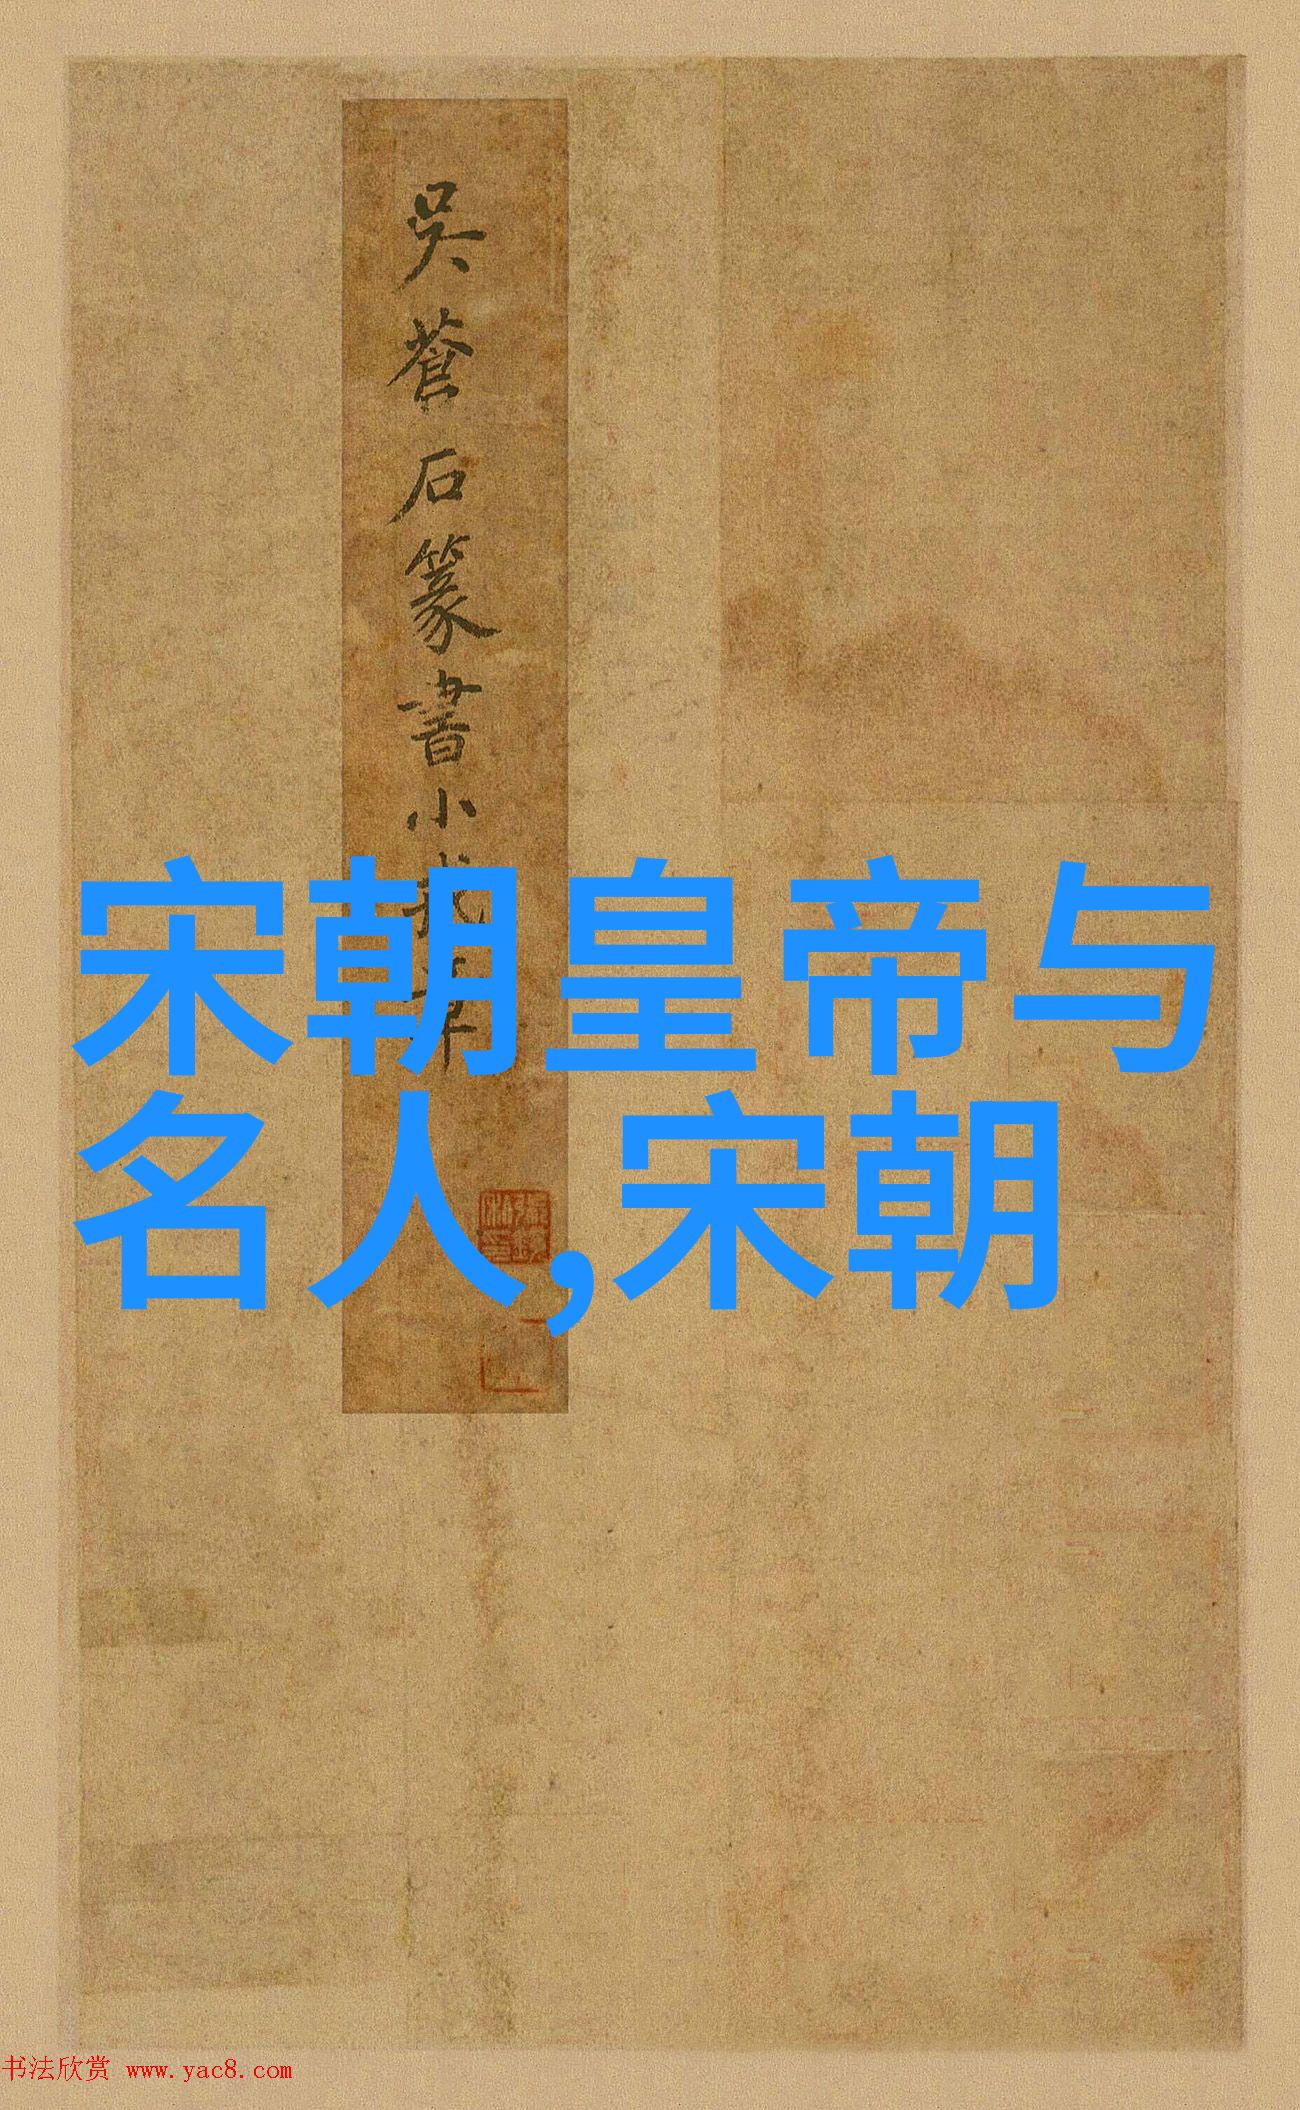 吳蒼石篆書小戎
宋朝皇帝与
名人,宋朝
书法欣赏 www.yac8.com